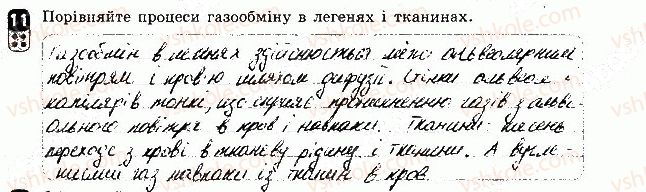 11 Порівняйте процеси газообміну в легенях і тканинах.
Газообмін в легенях здійснюється між альвеолярним
повітрям і кров'ю шляхом дифузії. Стінки альвеол і
капілярів тонкі, що сприяє проникненню газів з альве-
ольного повітря в кров і навпаки. Тканини кисень
переходе з крові в тканеву рідину і тканини. А вугле-
кислий газ навпаки із тканин в кров.